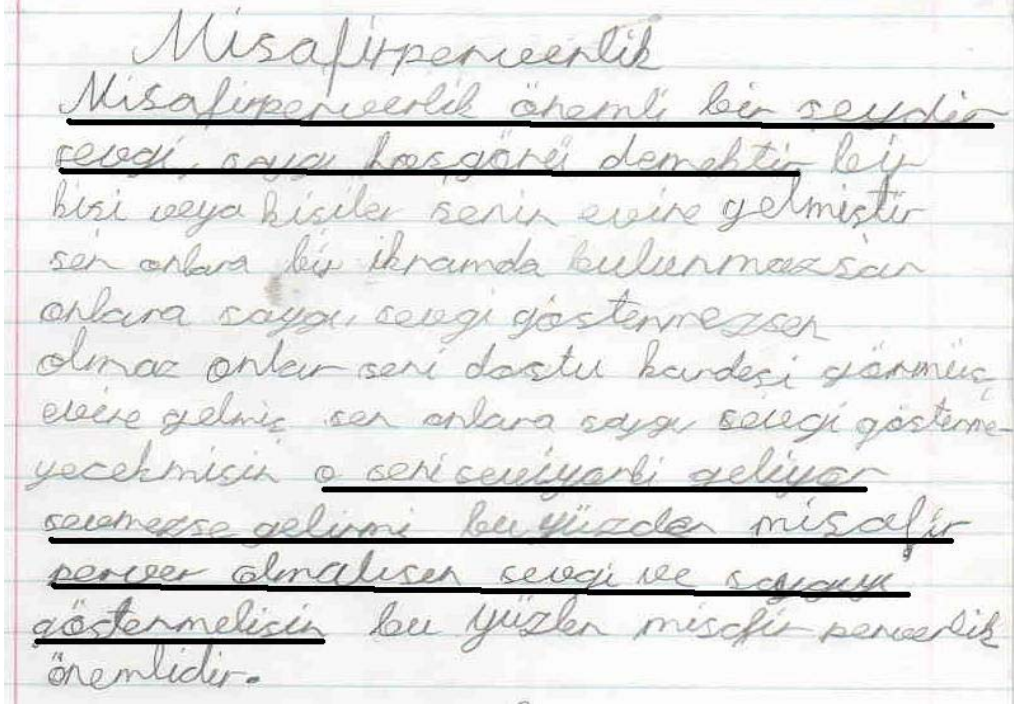 Misafirperverlik
Misafirperverlik önemli bir şeydir
sevgi, saygı hoşgörü demektir bir
kişi veya kişiler senin evine gelmiştir
sen onlara bir ikramda bulunmazsan
onlara saygı, sevgi göstermezsen
olmaz onlar seni dostu kardeşi görmüş,
evine gelmiş sen onlara saygı sevgi gösterme-
yecekmisin o seni seviyorki geliyor
sevmezse gelirmi bu yüzden misafir
perver olmalısın sevgi ve saygıyı
göstermelisin bu yüzden misafir perverlik
önemlidir.